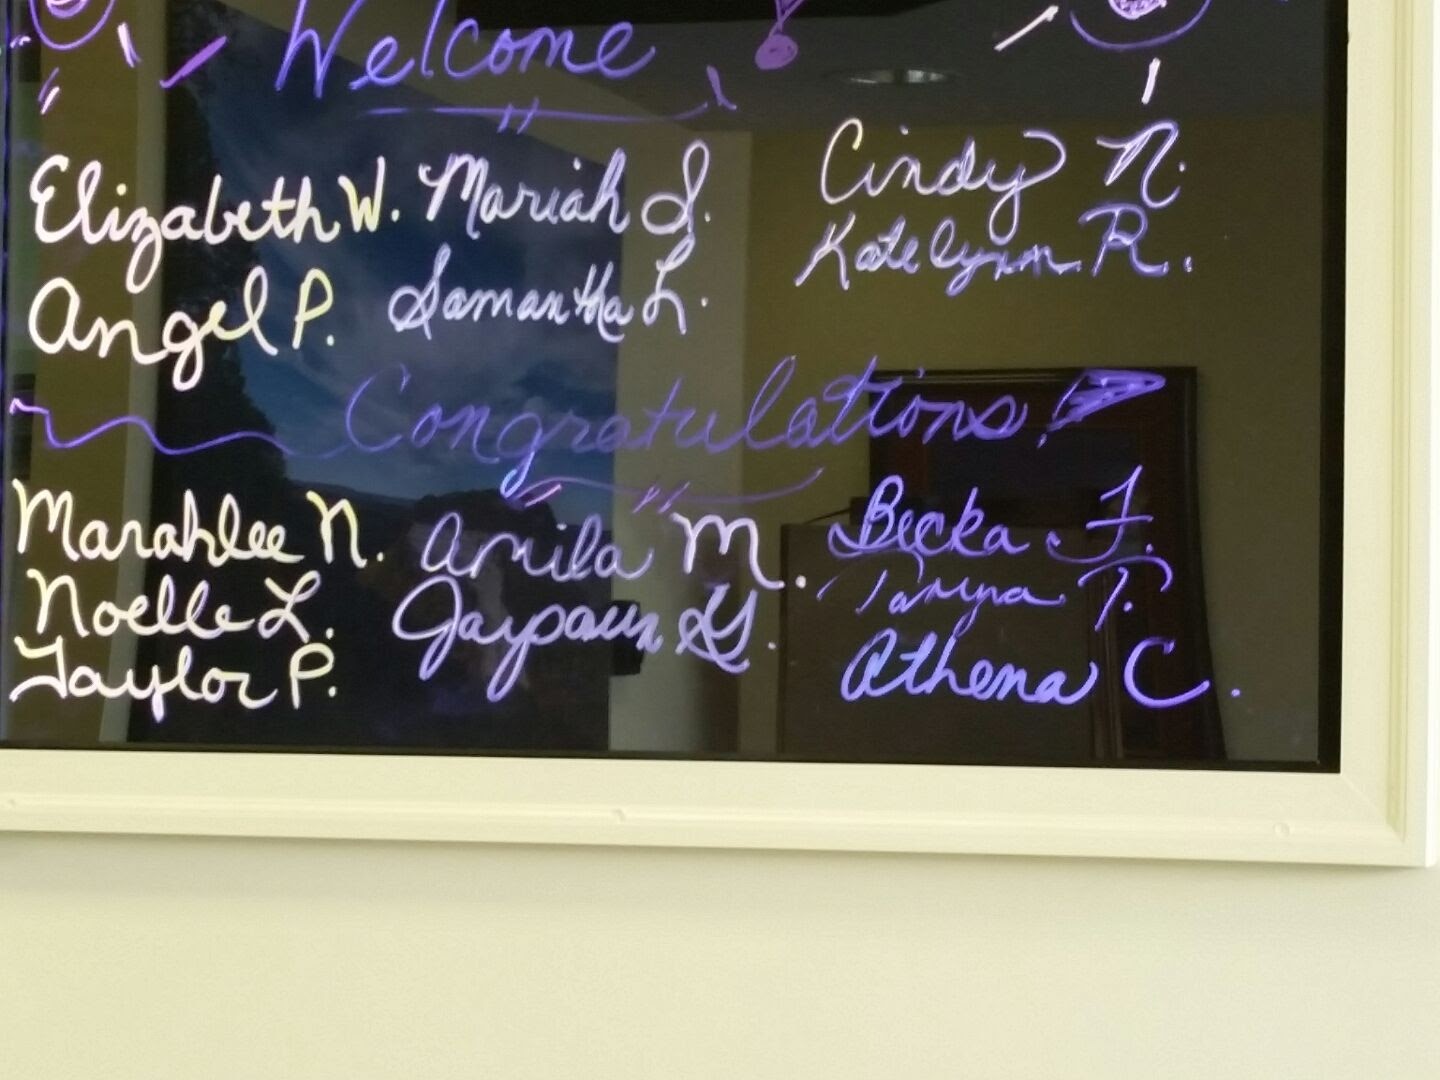 Welcome !
Elizabeth W. Mariah S. Cindy N.
Angel P. Samantha L. Katelynn R.
Congratulations!
Marahlee N. Amila M. Becka F.
Noelle L. T.
Taylor P. Athena C.